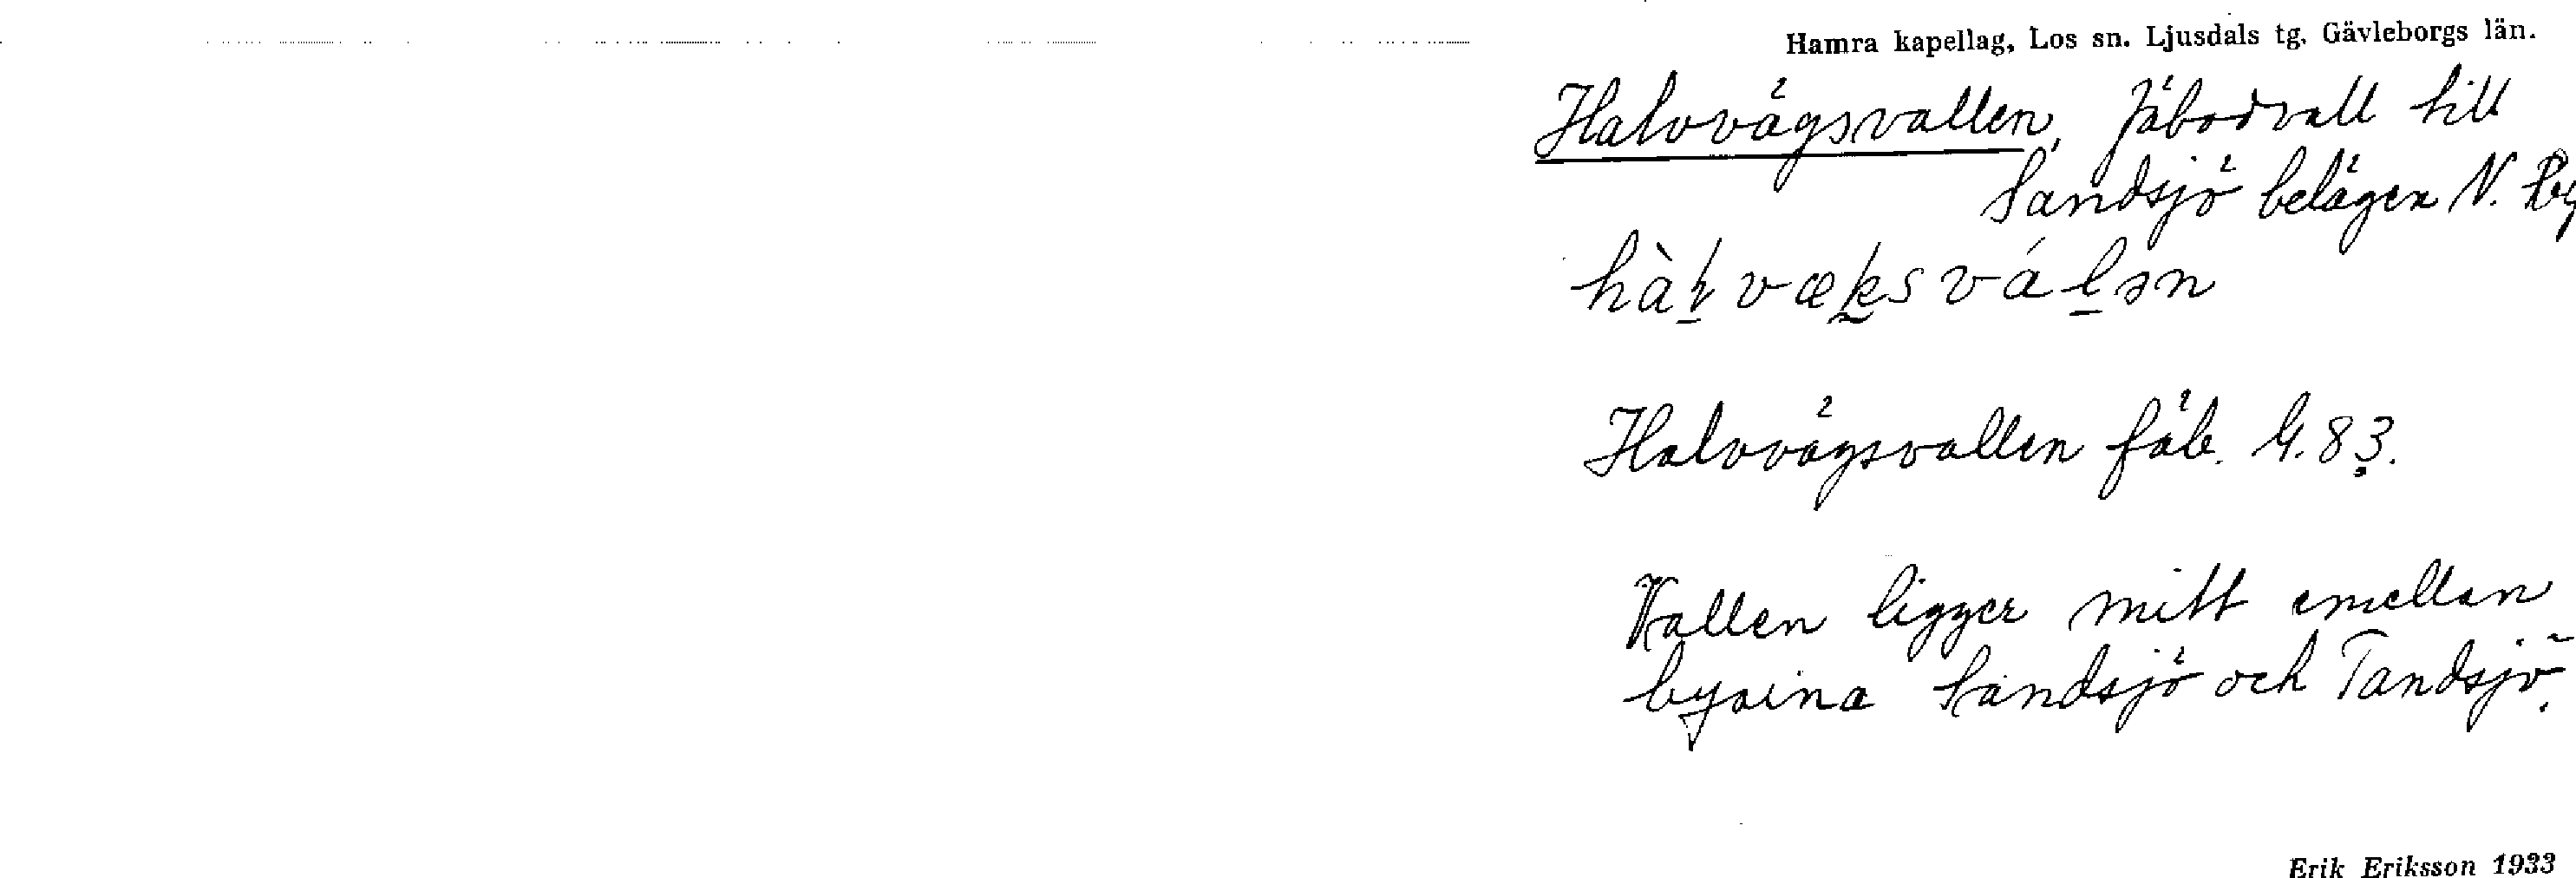 Hamra kapellag, Los sn. Ljusdals tg. Gävleborgs län.
Halvvägsvallen, Fäbodvall till
Sandsjö belägen N.
Halvvägsvallen fäb. G. 83.
Vallen ligger mitt emellan
byarna Sandsjö och Tandsjö.
Erik Eriksson 1933